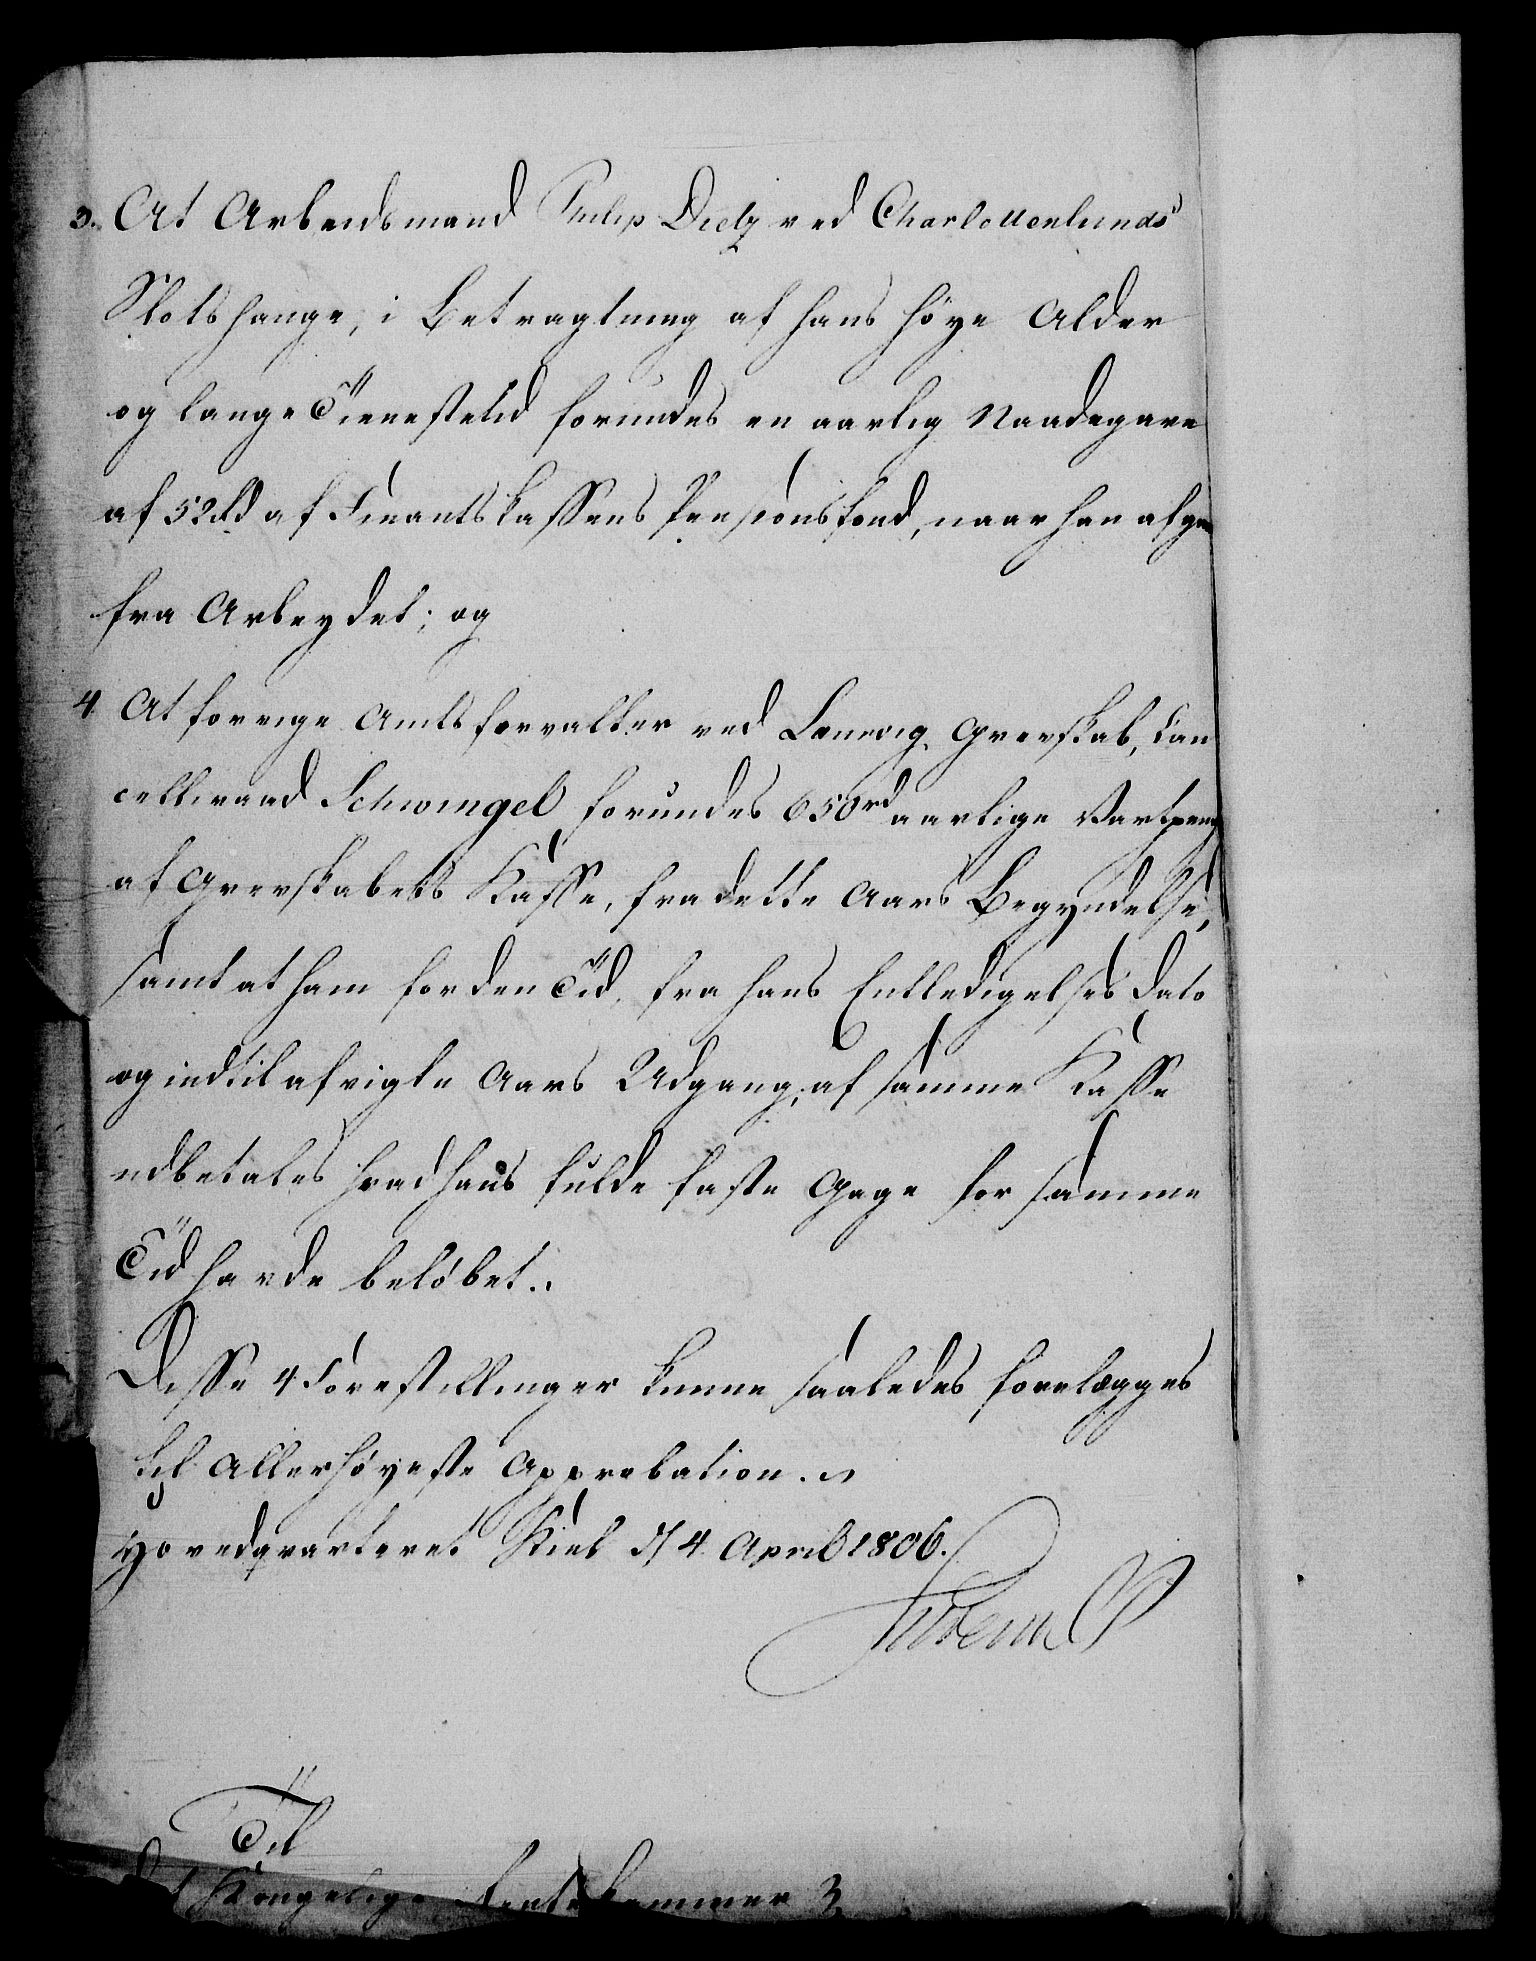 3. At Arbeidsmand Philip Dietz ved Charlottenlunds
Slotshauge, i Betragtning af hans höye Alder
og lange Tienestetid forundes en aarlig Naadegave
af 52 rd af Finantskassens Pensionsfond, naar han afgaar
fra Arbeydet; og
4. At forrige Amtsforvalter ved Laurvig Grevskab, Can
celliraad Schwingel forundes 650 rd aarlige Vartpenge
af Grevskabets Kasse, fra dette Aars Begyndelse,
samt at ham for den Tid, fra hans Entledigelses Dato
og indtil afvigte Aars Udgang, af samme Kasse
udbetales hvad hans fulde faste Gage for samme
Tid havde belöbet.
Disse 4 Forestillinger kunne saaledes forelægges
til Allerhöyeste Approbation.
Hovedqvarteret Kiel d. 4 April 1806.
Friderich
Til
det Kongelige Rentekammer